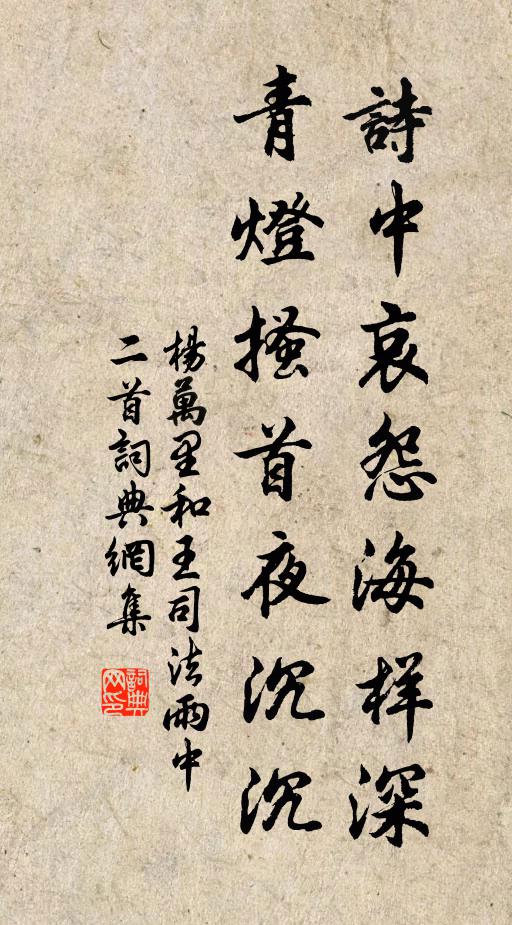 詩中哀怨海樣深
青燈搔首夜沉沉
楊萬里和王司法雨中
二首詞典網集
詞典网印